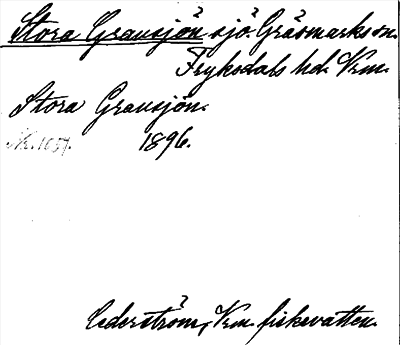 Stora Gransjön sjö. Gräsmarks sn.
Fryksdals hd. Vrm.
Stora Gransjön.
1896.
Cederström, Vrm. fiskevatten.